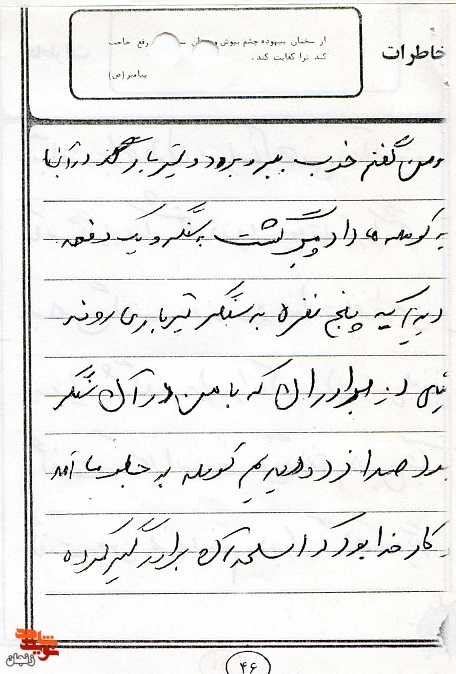 خاطرات
از سخنان بیهوده چشم بپوش و رفع حاجت
کند ترا کفایت کند.
پیامبر (ص)
و من گفتم خوب ببر و برد و تیربار در آنجا
به کومله ها داد و برگشت به سنگر و یک دفعه
دیدیم که پنج نفره به سنگر تیرباری روند
یکی از برادران که با من در آن سنگر
بود صدا زد و دیدیم کومله به جلو ما آمد
کار خدا بود که اسلحه آن برادر گیر کرده
۴۶
زنجان